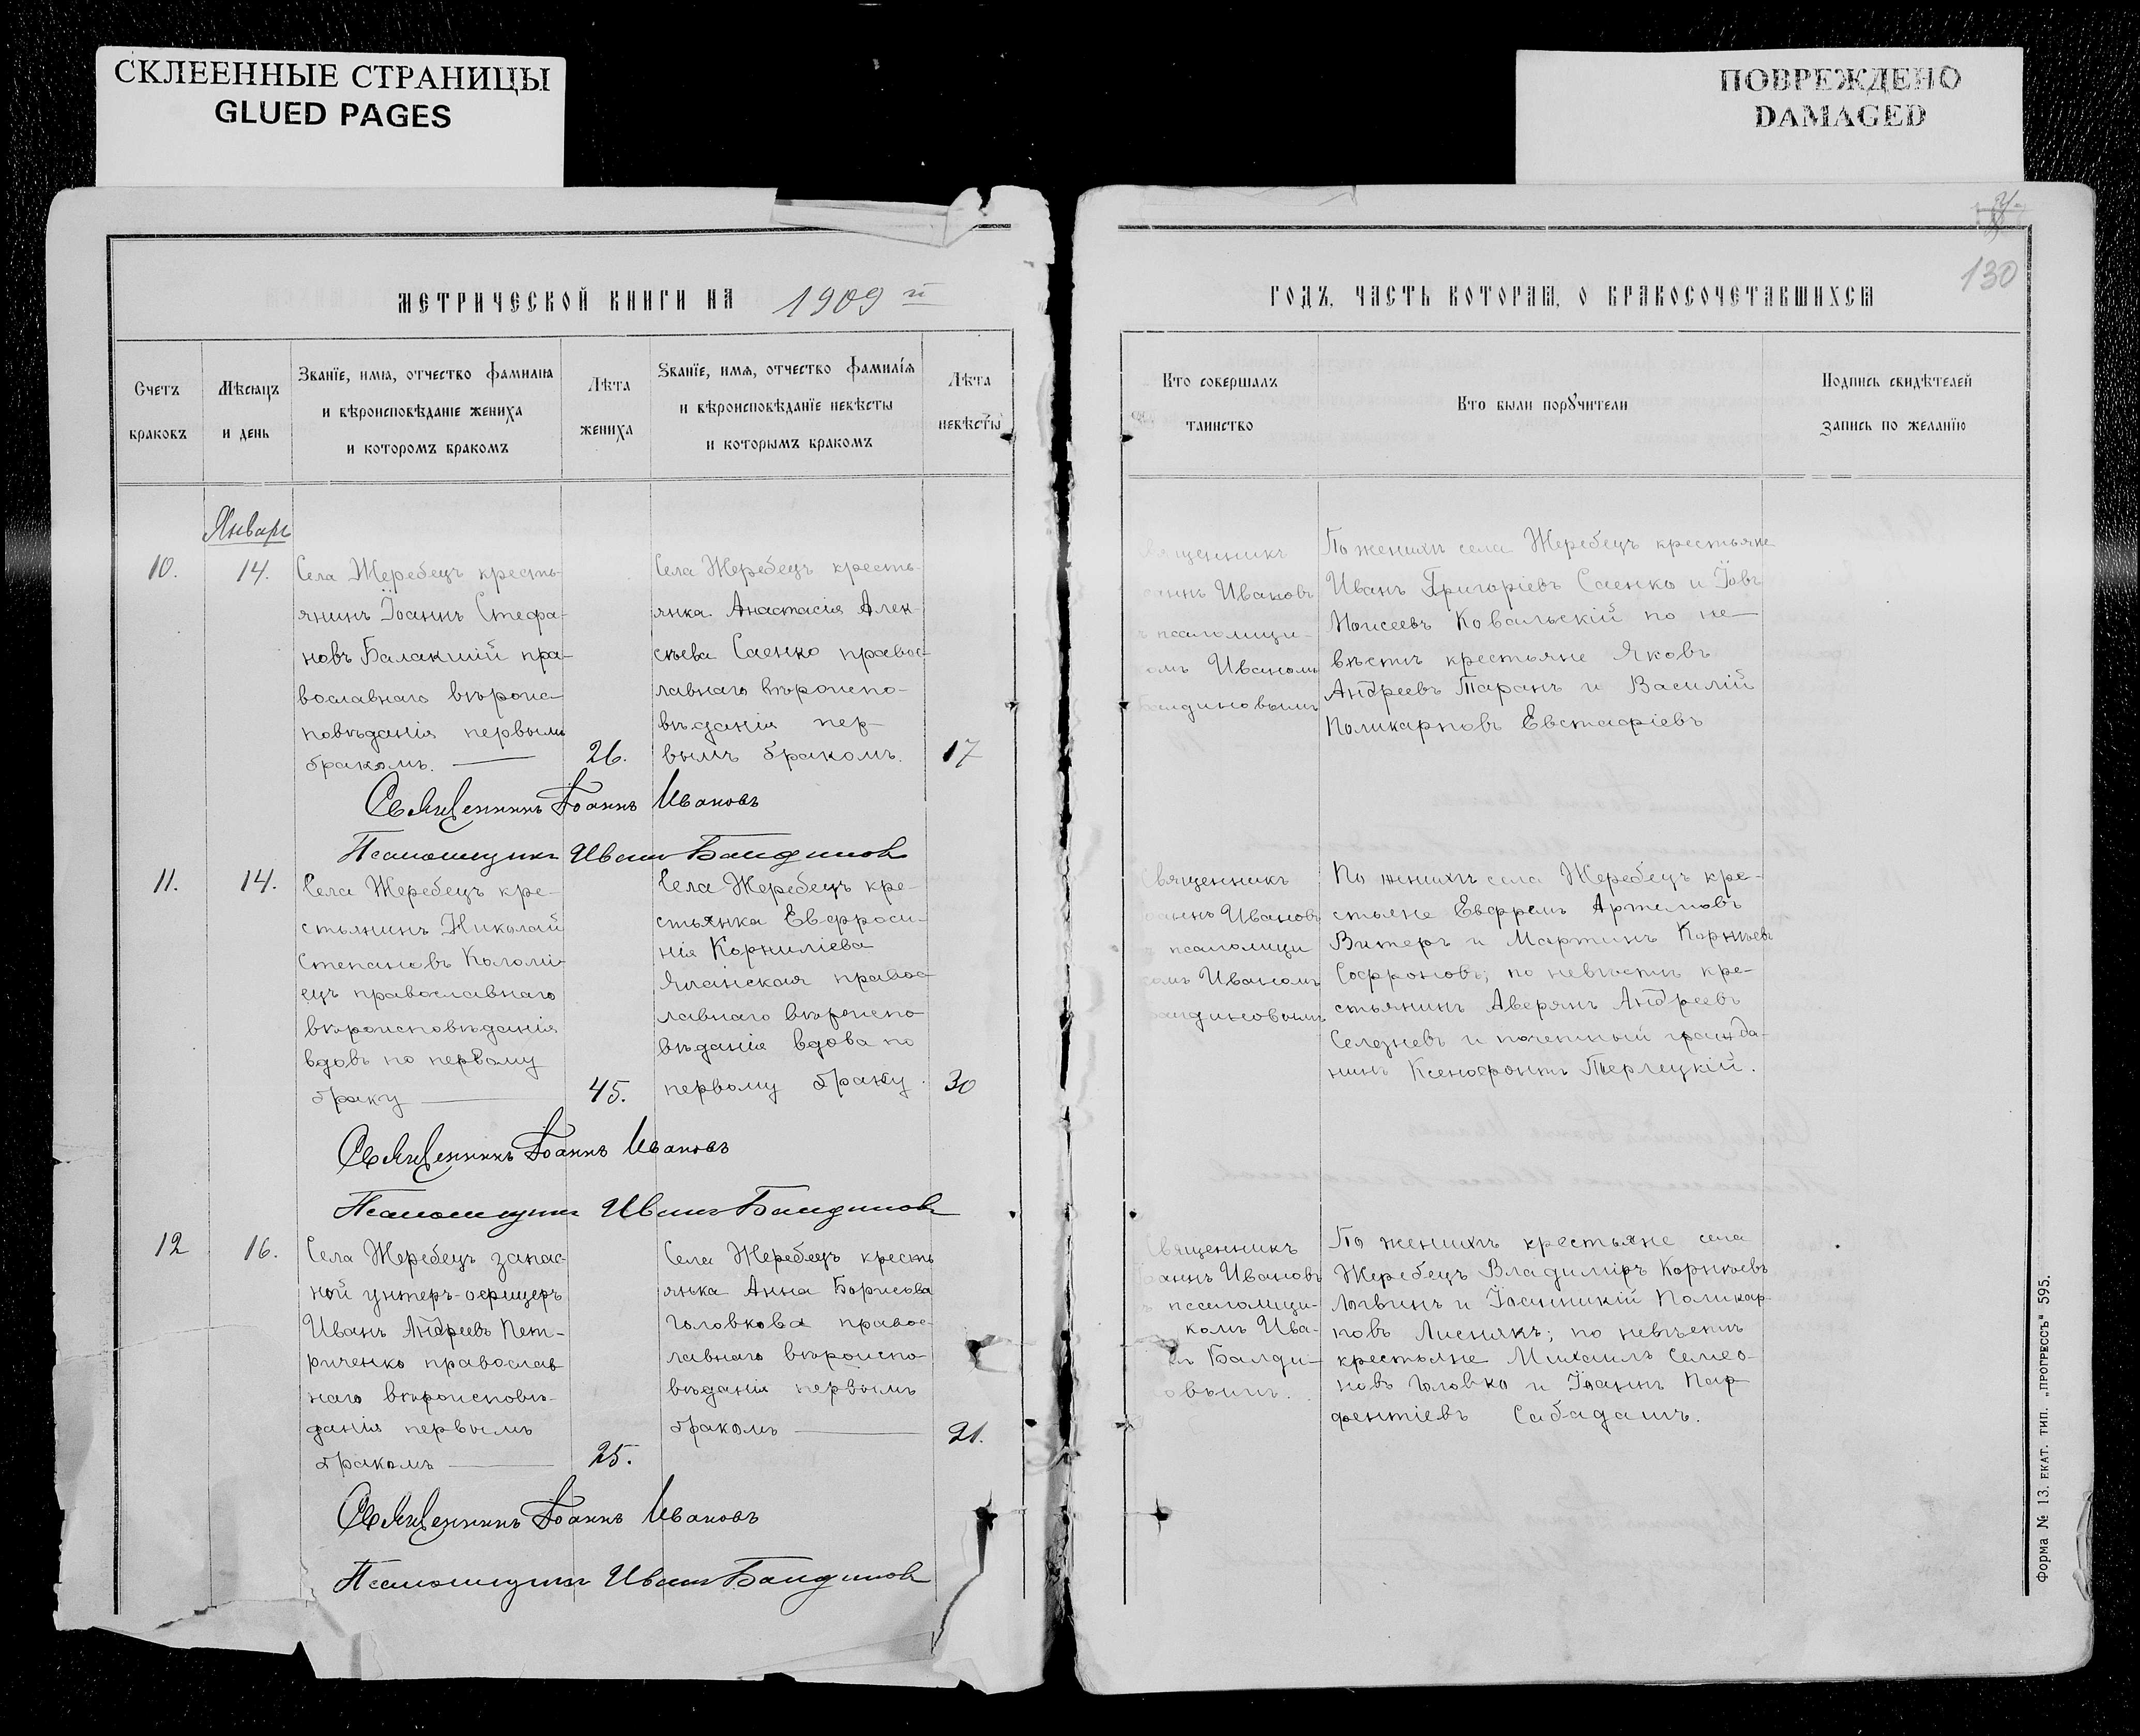 СКЛЕЕННЫЕ СТРАНИЦЫ
GLUED PAGES
ПОВРЕЖДЕНО
DAMAGED
130
МЕТРИЧЕСКОЙ КНИГИ НА 1909 й
ГОДЪ, ЧАСТЬ КОТОРАЯ, О БРАКОСОЧЕТАВШИХСЯ
Счетъ
браковъ
Мѣсяцъ
и день
Званіе, имя, отчество фамилія
и вѣроисповѣданіе жениха
и которомъ бракомъ
Лѣта
жениха
Званіе, имя, отчество фамилія
и вѣроисповѣданіе невѣсты
и которымъ бракомъ
Лѣта
невѣсты
Кто совершалъ
таинство
Кто были поручители
Подпись свидѣтелей
запись по желанію
Январь
10.
14.
Села Жеребецъ кресть-
янинъ Іоаннъ Стефа-
новъ Балакшій пра-
вославнаго вѣроис-
повѣданія первымъ
бракомъ.
26.
Села Жеребецъ кресть-
янка Анастасія Алек-
сѣева Саенко правос-
лавнаго вѣроиспо-
вѣданія пер-
вымъ бракомъ.
17
вященникъ
аннъ Ивановъ
псаломщи-
омъ Иваномъ
алдиновымъ
По женихѣ села Жеребецъ крестьяне
Иванъ Григоріевъ Саенко и Іовъ
Моисеевъ Ковальскій по не-
вѣстѣ крестьяне Яковъ
Андреевъ Таранъ и Василій
Поликарповъ Евстафіевъ
Священникъ Іоаннъ Ивановъ
Псаломщикъ Иванъ Балдиновъ
11.
14.
Села Жеребецъ кре-
стьянинъ Николай
Степановъ Коломі-
ецъ православнаго
вѣроисповѣданія
вдовъ по первому
браку
45.
Села Жеребецъ кре-
стьянка Евфроси-
нія Корниліева
Яланская правос-
лавнаго вѣроиспо-
вѣданія вдова по
первому браку.
30
Священникъ
оаннъ Ивановъ
псаломщи
омъ Иваномъ
алдиновымъ
По женихѣ села Жеребецъ кре-
стьяне Евфремъ Артемовъ
Витеръ и Мартинъ Корнѣевъ
Софроновъ; по невѣстѣ кре-
стьянинъ Аверянъ Андреевъ
Селезневъ и почетный гражда-
нинъ Ксенофонтъ Терлецкій.
Священникъ Іоаннъ Ивановъ
Псаломщикъ Иванъ Балдиновъ
12
16.
Села Жеребецъ запас-
ной унтеръ-офицеръ
Иванъ Андреевъ Пет-
риченко православ
наго вѣроисповѣ-
данія первымъ
бракомъ
25.
Села Жеребецъ кресть
янка Анна Борисова
Головкова правос-
лавнаго вѣроиспо-
вѣданія первымъ
бракомъ
21.
Священникъ
оаннъ Ивановъ
псаломщи-
комъ Ива-
Балди-
овымъ.
По женихѣ крестьяне села
Жеребецъ Владиміръ Корнѣевъ
Логвинъ и Іоанникій Поликар-
повъ Лиснякъ; по невѣстѣ
крестьяне Михаилъ Семео-
новъ Головко и Іоаннъ Пар-
фентіевъ Сабадашъ.
Священникъ Іоаннъ Ивановъ
Псаломщикъ Иванъ Балдиновъ
Форма № 13. ЕКАТ. ТИП. „ПРОГРЕССЪ“ 595.